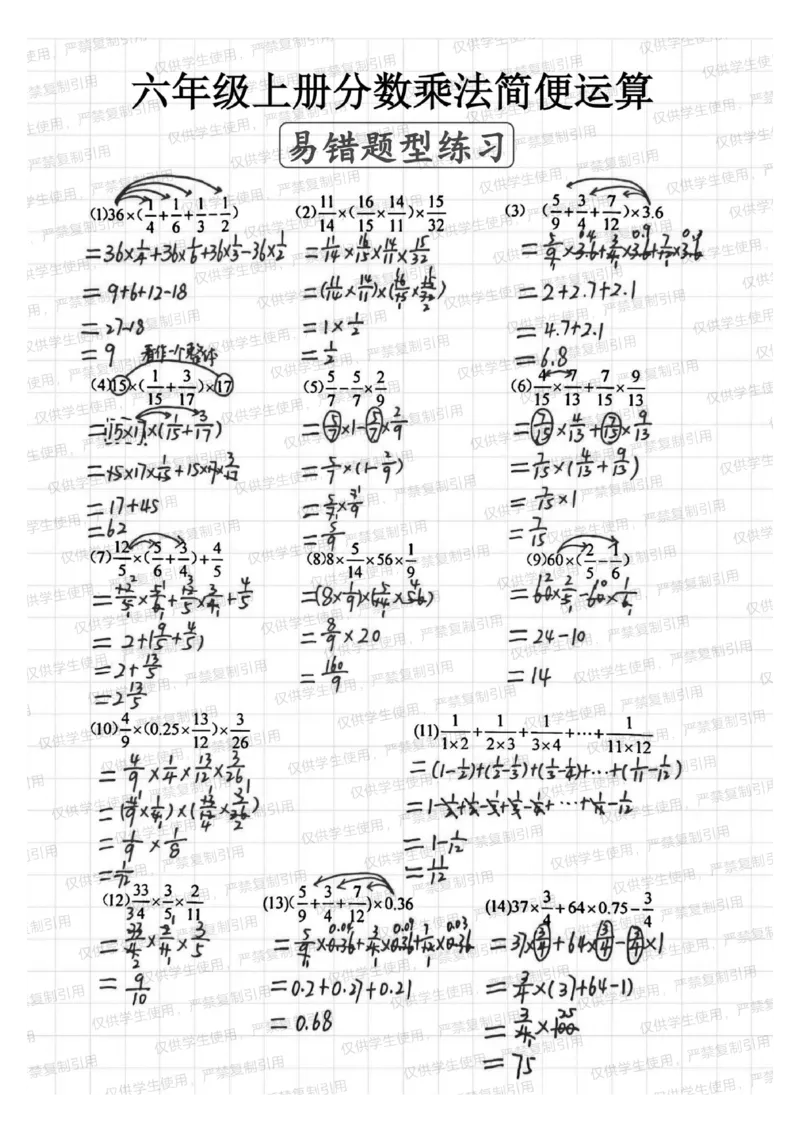 六年级上册分数乘法简便运算
易错题型练习
(1)36×(1/4+1/6+1/3-1/2)
=36×1/4+36×1/6+36×1/3-36×1/2
=9+6+12-18
=27-18
=9
(2)11/14×(16/15×14/11)×15/32
=11/14×16/15×14/11×15/32
=(11/14×14/11)×(16/15×15/32)
=1×1/2
=1/2
(3) (5/9+3/4+7/12)×3.6
=5/9×3.6+3/4×3.6+7/12×3.6
=2+2.7+2.1
=4.7+2.1
=6.8
看作一个整体
(4)15×(1/15+3/17)×17
=15×17×(1/15+3/17)
=15×17×1/15+15×17×3/17
=17+45
=62
(5)5/7-5/7×2/9
=5/7×1-5/7×2/9
=5/7×(1-2/9)
=5/7×7/9
=5/9
(6)4/15×7/13+7/15×9/13
=7/15×4/13+7/15×9/13
=7/15×(4/13+9/13)
=7/15×1
=7/15
(7)12/5×(5/6+3/4)+4/5
=12/5×5/6+12/5×3/4+4/5
=2+(9/5+4/5)
=2+13/5
=2 13/5
(8)8×5/14×56×1/9
=(8×1/9)×(5/14×56)
=8/9×20
=160/9
(9)60×(2/5-1/6)
=60×2/5-60×1/6
=24-10
=14
(10)4/9×(0.25×13/12)×3/26
=4/9×1/4×13/12×3/26
=(4/9×1/4)×(13/12×3/26)
=1/9×1/8
=1/72
(11)1/1×2+1/2×3+1/3×4+⋯+1/11×12
=(1-1/2)+(1/2-1/3)+(1/3-1/4)+⋯+(1/11-1/12)
=1-1/2+1/2-1/3+1/3-1/4+⋯+1/11-1/12
=1-1/12
=11/12
(12)33/34×3/5×2/11
=33/4×2/4×3/5
=9/10
(13)(5/9+3/4+7/12)×0.36
=5/9×0.36+3/4×0.36+7/12×0.36
=0.2+0.27+0.21
=0.68
(14)37×3/4+64×0.75-3/4
=37×3/4+64×3/4-3/4×1
=3/4×(37+64-1)
=3/4×100
=75
仅供学生使用，严禁复制引用